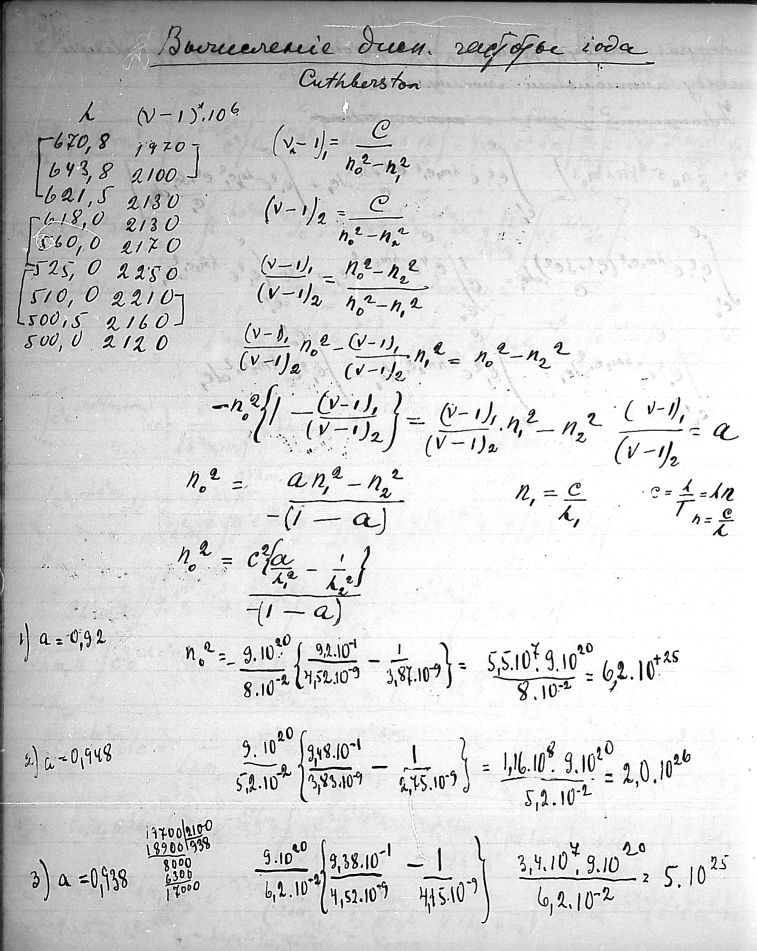 Вычисленіе дисп. частоты іода
Cuthberston
λ (ν−1)·10⁶
670,8 1970
643,8 2100
621,5 2130
618,0 2130
560,0 2170
525,0 2250
510,0 2210
500,5 2160
500,0 2120
(ν−1)₁ = C / (n₀² − n₁²)
(ν−1)₂ = C / (n₀² − n₂²)
(ν−1)₁ / (ν−1)₂ = (n₀² − n₂²) / (n₀² − n₁²)
(ν−1)₁ / (ν−1)₂ n₀² − (ν−1)₁ / (ν−1)₂ · n₁² = n₀² − n₂²
−n₀² {1 − (ν−1)₁ / (ν−1)₂} = (ν−1)₁ / (ν−1)₂ · n₁² − n₂² (ν−1)₁ / (ν−1)₂ = a
n₀² = (a n₁² − n₂²) / −(1 − a) n₁ = c / λ₁ c = λ / T = λn
n = c / λ
n₀² = c² {a / λ₁² − 1 / λ₂²} / −(1 − a)
1) a = 0,92 n₀² = − 9·10²⁰ / 8·10⁻² {9,2·10⁻¹ / 4,52·10⁻⁹ − 1 / 3,87·10⁻⁹} = 5,5·10⁷·9·10²⁰ / 8·10⁻² = 6,2·10⁺²⁵
2) a = 0,948 9·10²⁰ / 5,2·10⁻² {9,48·10⁻¹ / 3,83·10⁻⁹ − 1 / 2,75·10⁻⁹} = 1,16·10⁸·9·10²⁰ / 5,2·10⁻² = 2,0·10²⁶
19700 2100
18900 938
8000
6300
17000
3) a = 0,938 9·10²⁰ / 6,2·10⁻² {9,38·10⁻¹ / 4,52·10⁻⁹ − 1 / 4,15·10⁻⁹} 3,4·10⁷·9·10²⁰ / 6,2·10⁻² = 5·10²⁵